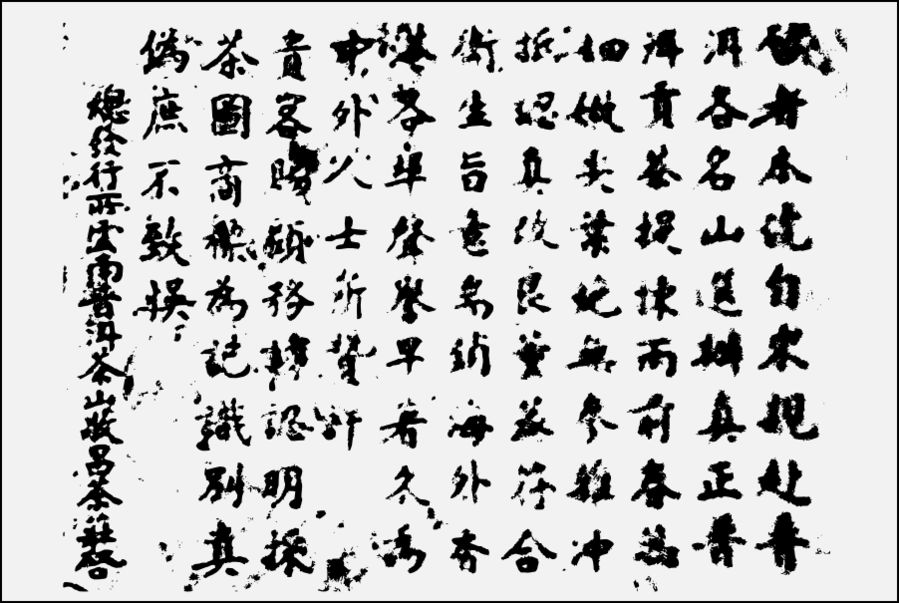 啟者本號自來親赴普
洱各名山選辦真正普
洱貢茶提揀雨前春蕊
細嫩尖葉絕無參雜冲
抵認真改良符合
衛生旨意銷海外香
港等埠聲譽早著久為
中外人士所贊許
貴客賜顧務請認明採
茶圖商標為記識別真
偽庶不致悞
總發行所雲南普洱茶山敬昌茶莊啟